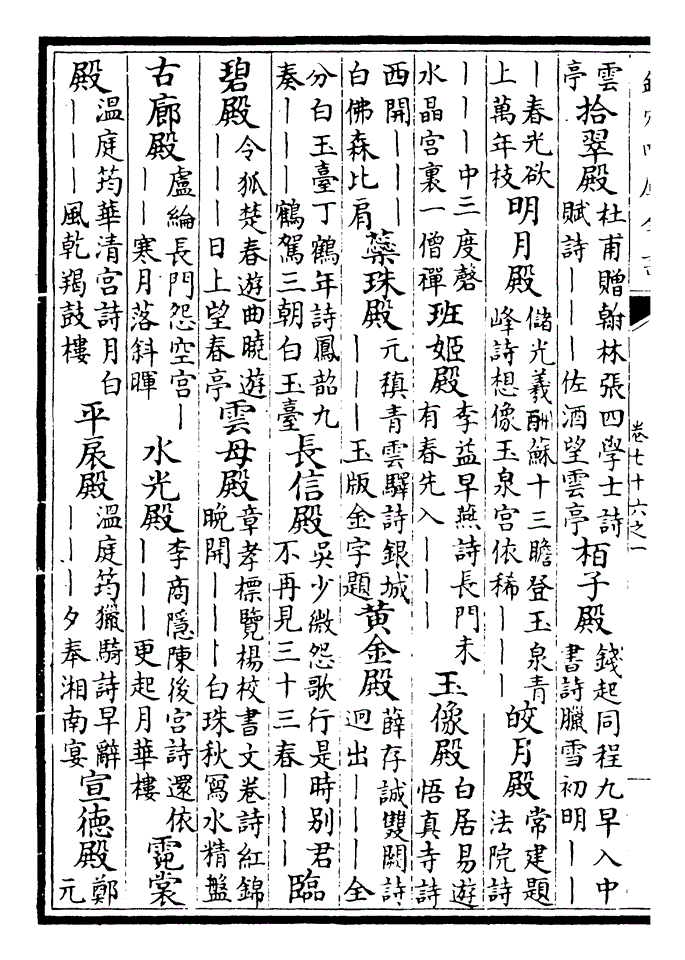 欽定四庫全書
卷七十六之一
雲亭拾翠殿杜甫贈翰林張四學士詩賦詩———佐酒望雲亭栢子殿錢起同程九早入中書詩臘雪初明——
—春光欲上萬年枝明月殿儲光羲酬蘇十三瞻登玉泉青峰詩想像玉泉宫依稀———皎月殿常建題法院詩
———中三度磬水晶宫裏一僧禪班姬殿李益早燕詩長門未有春先入———玉像殿白居易遊悟真寺詩
西開———白佛森比肩蘂珠殿元稹青雲驛詩銀城———玉版金字題黄金殿薛存誠雙闕詩迥出———全
分白玉臺丁鶴年詩鳳韶九奏———鶴駕三朝白玉臺長信殿吳少微怨歌行是時别君不再見三十三春———臨
碧殿令狐楚春遊曲曉遊———日上望春亭雲母殿章孝標覽楊校書文卷詩紅錦晚開———白珠秋寫水精盤
古廊殿盧綸長門怨空宫———寒月落斜暉水光殿李商隱陳後宫詩還依———更起月華樓霓裳
殿溫庭筠華清宫詩月白———風乾羯鼓樓平扆殿溫庭筠獵騎詩早辭———夕奉湘南宴宣德殿鄭元